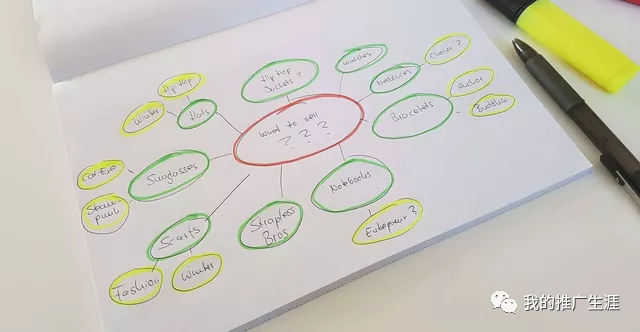 Hip Hop
Winter
Hats
Hip Hop
Jackets ?
Watches
Necklaces
Choker ?
Bracelets
Anchor
Buddha
What to sell
? ? ?
Cat Eye
Steam-
punk
Sunglasses
Notebooks
Scarfs
Fashion
Winter
Strapless
Bras
我的推广生涯